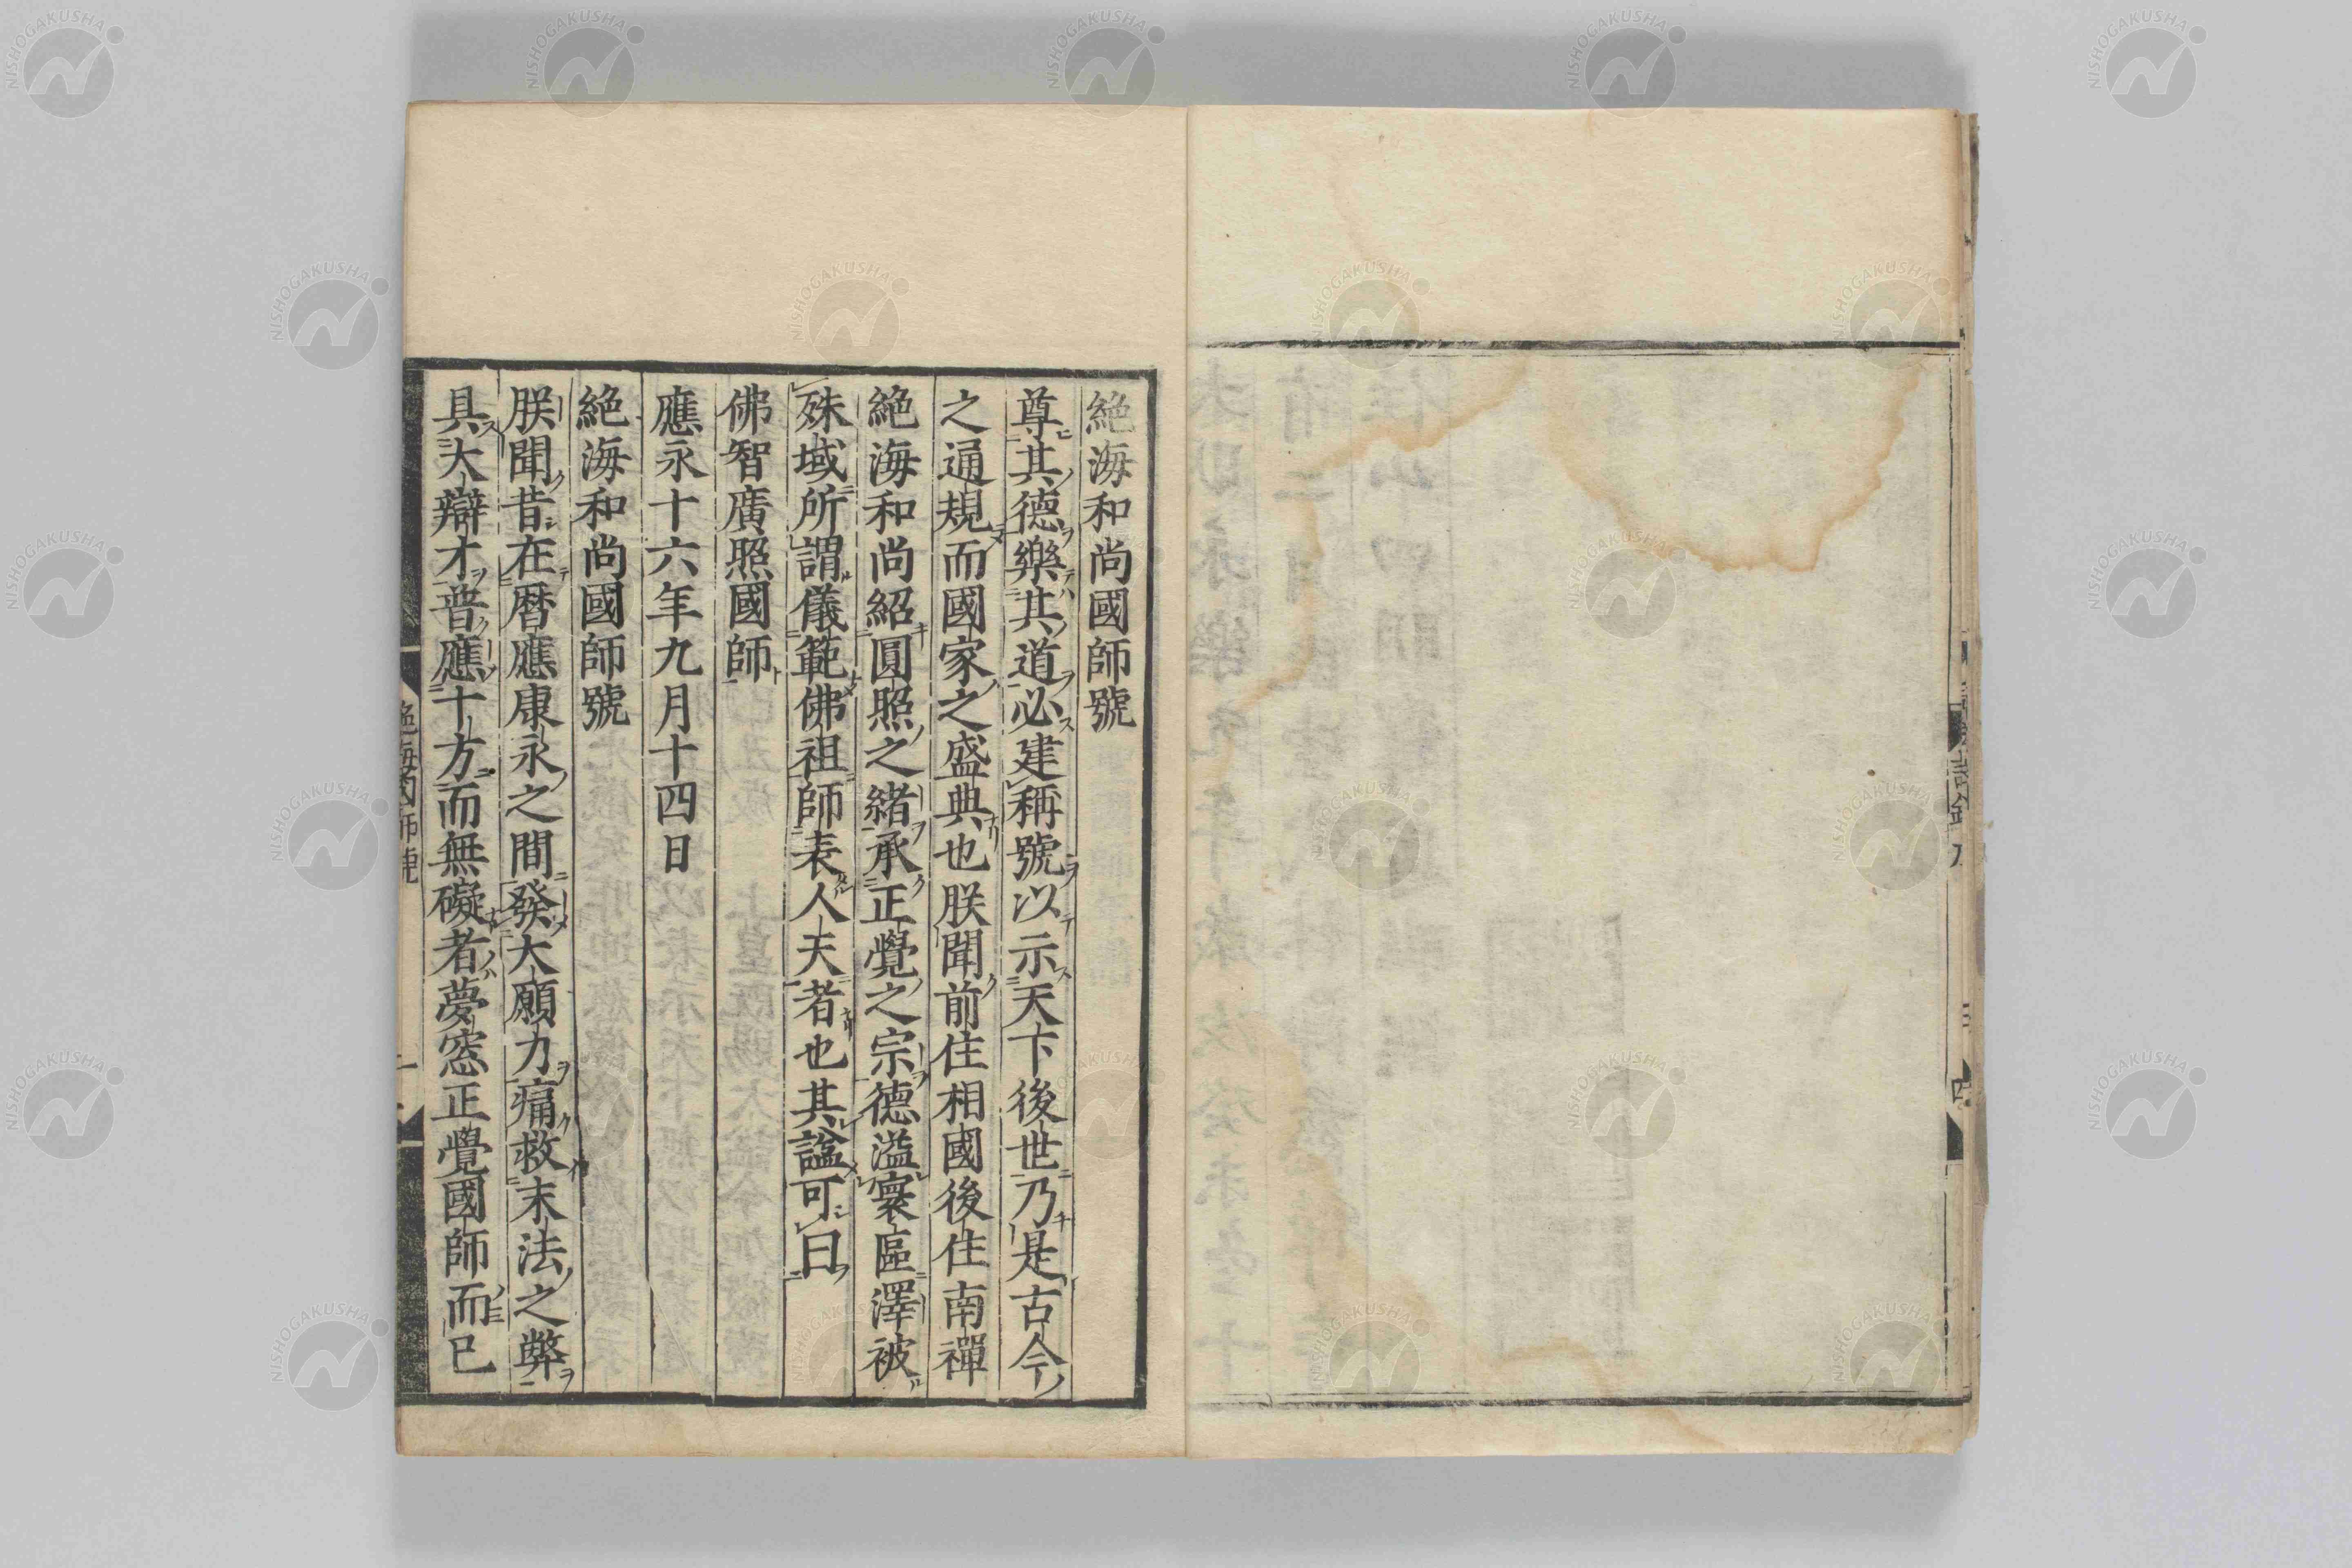 絶海和尚國師號
尊其德樂其道必建稱號以示天下後世乃是古今
之通規而國家之盛典也朕聞前住相國後住南禪
絶海和尚紹圓照之緒承正覺之宗德溢寰區澤被
殊域所謂儀範佛祖師表人天者也其謚可曰
佛智廣照國師
應永十六年九月十四日
絶海和尚國師號
朕聞昔在曆應康永之間發大願力痛救末法之弊
具大辯才普應十方而無礙者夢窓正覺國師而已
NISHOGAKUSHA